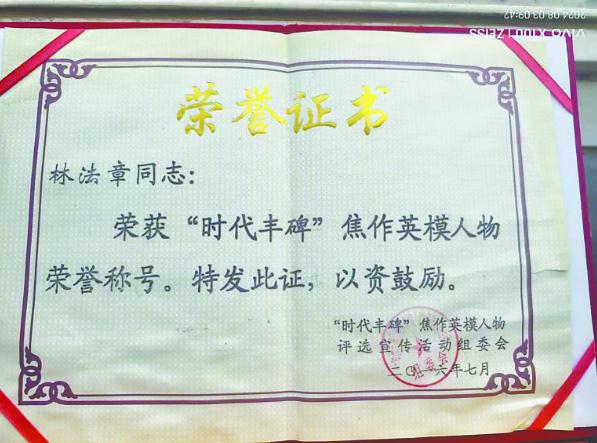 荣誉证书
林法章同志：
荣获“时代丰碑”焦作英模人物
荣誉称号。特发此证，以资鼓励。
“时代丰碑”焦作英模人物
评选宣传活动组委会
二〇一六年七月
vivo X100 | ZEISS
2024.08.03 09:42